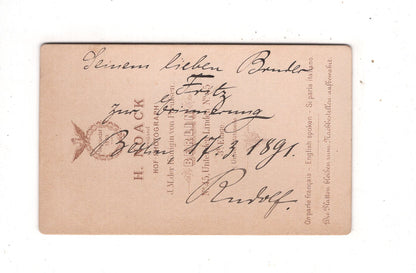 Seinem lieben Bruder
Fritz
zur Erinnerung
Berlin 17.3.1891.
Rudolf.
H. NOACK
HOF-PHOTOGRAPH
I.M. der Königin von
BERLIN
45, Unter den Linden
On parle français - English spoken - Si parla italiano.
Die Platten bleiben zum Nachbestellen aufbewahrt.